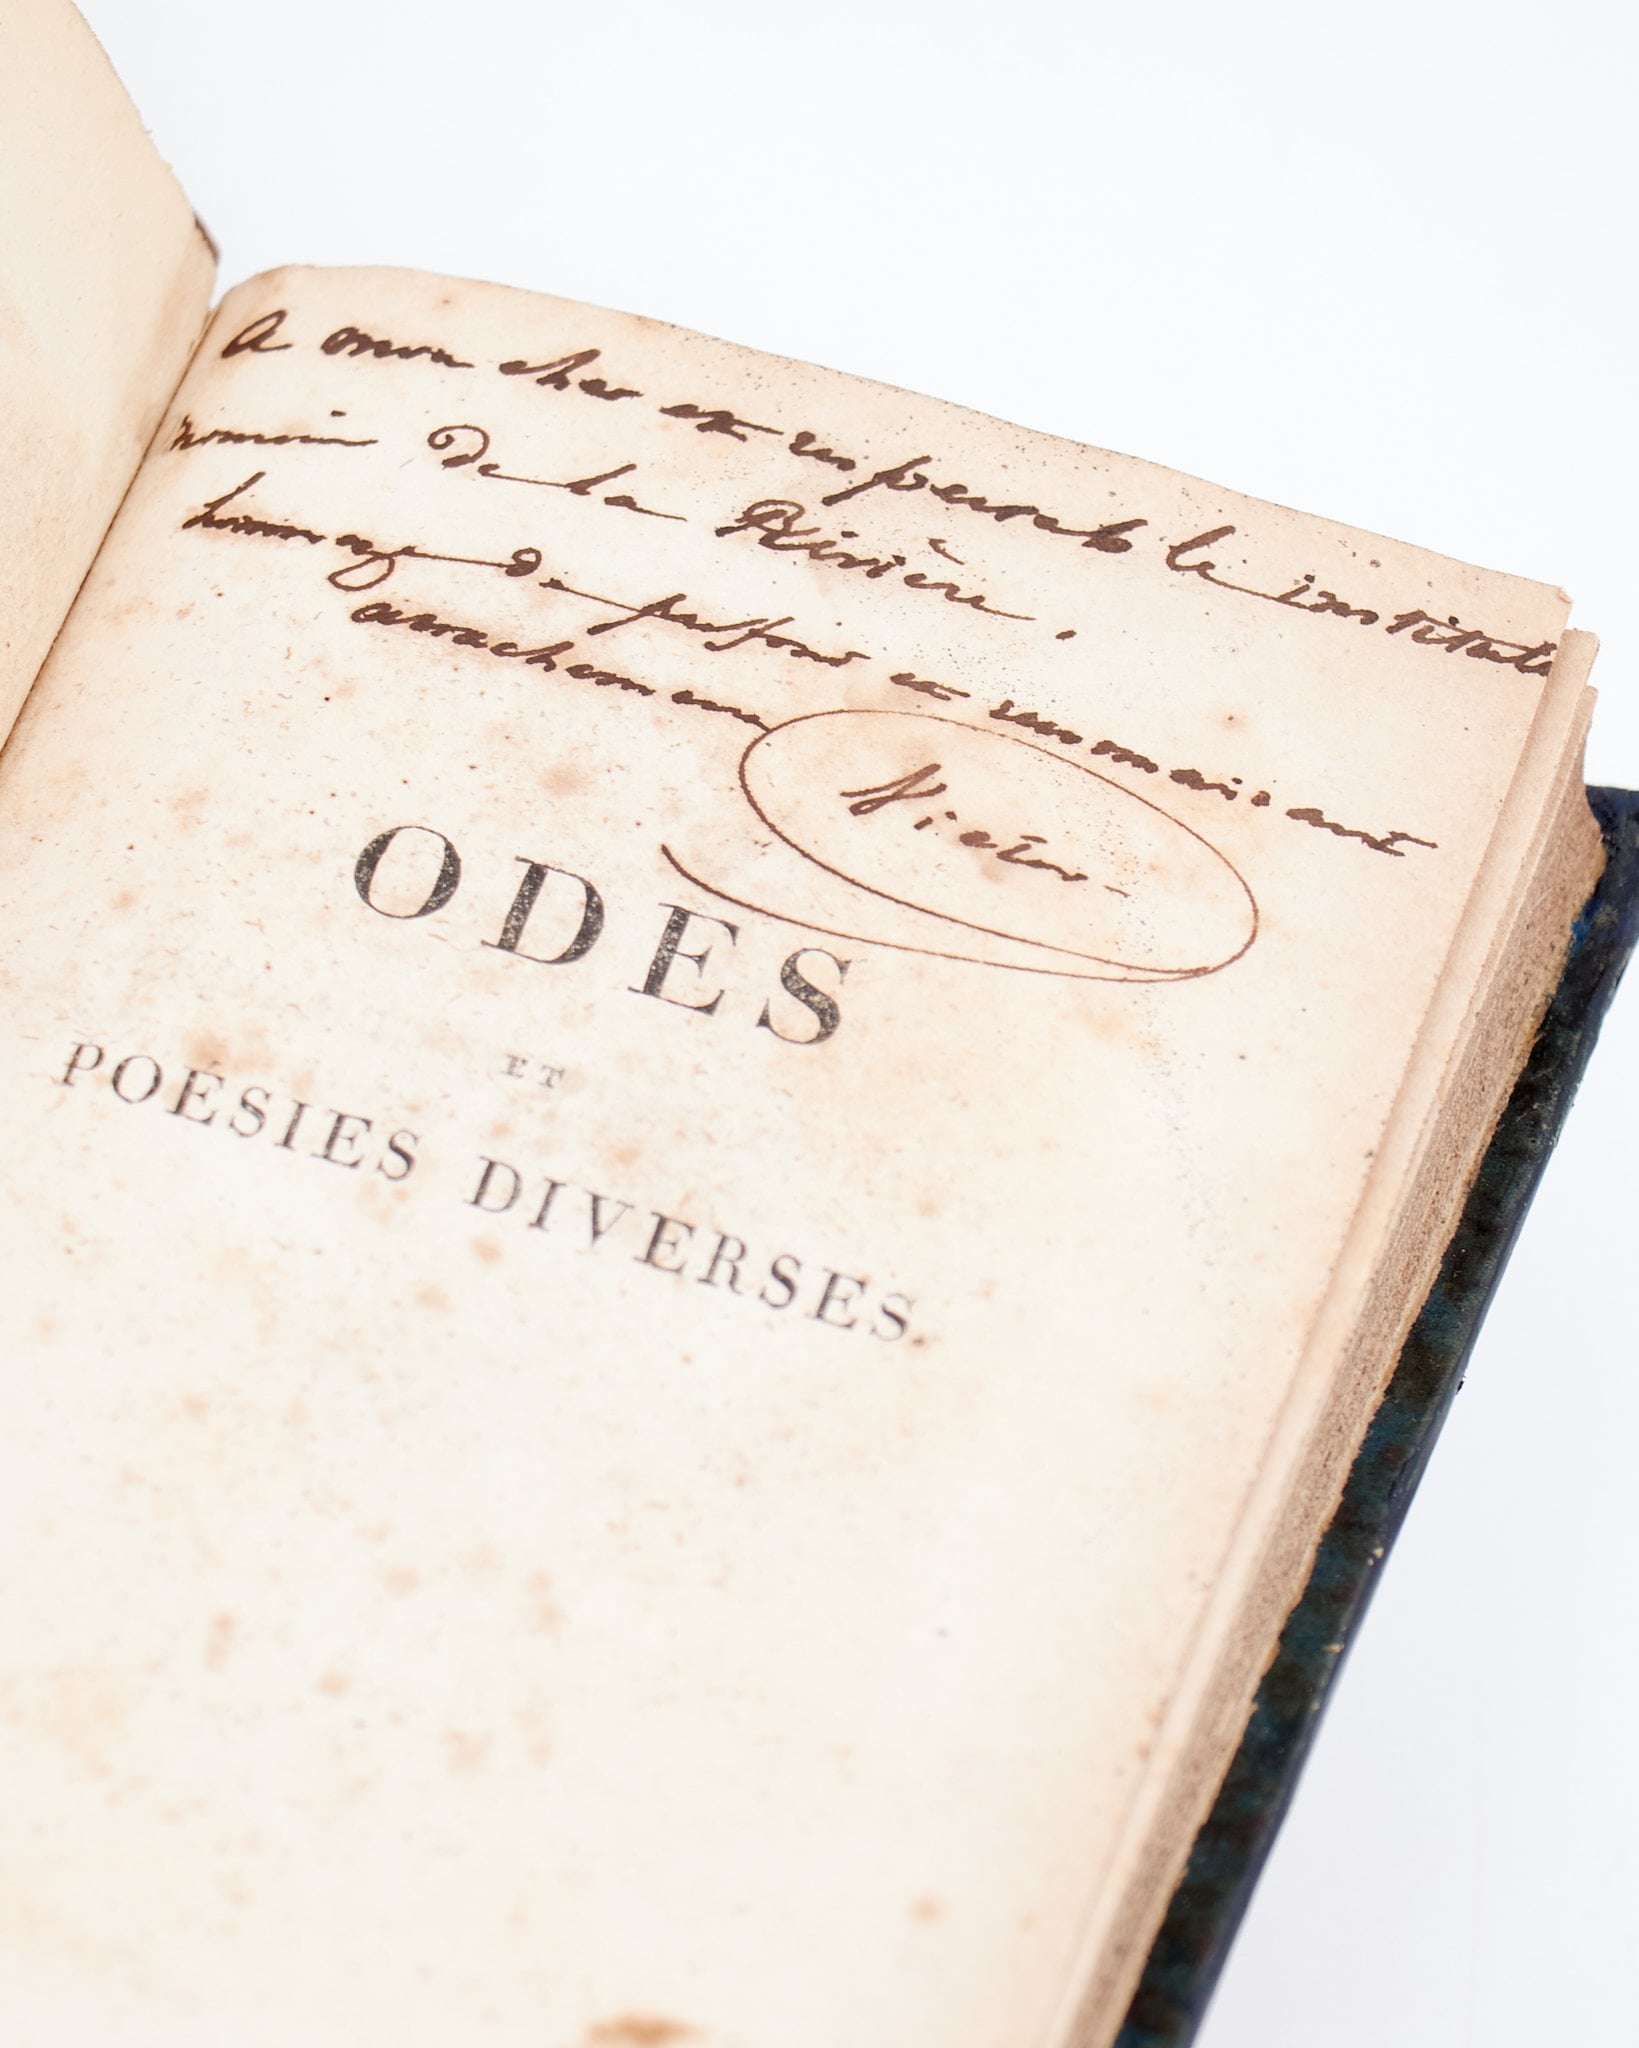 A mon cher et respectable instituteur
monsieur De la Rivière,
hommage de profond et reconnaissant
attachement
Victor
ODES
ET
POÉSIES DIVERSES.